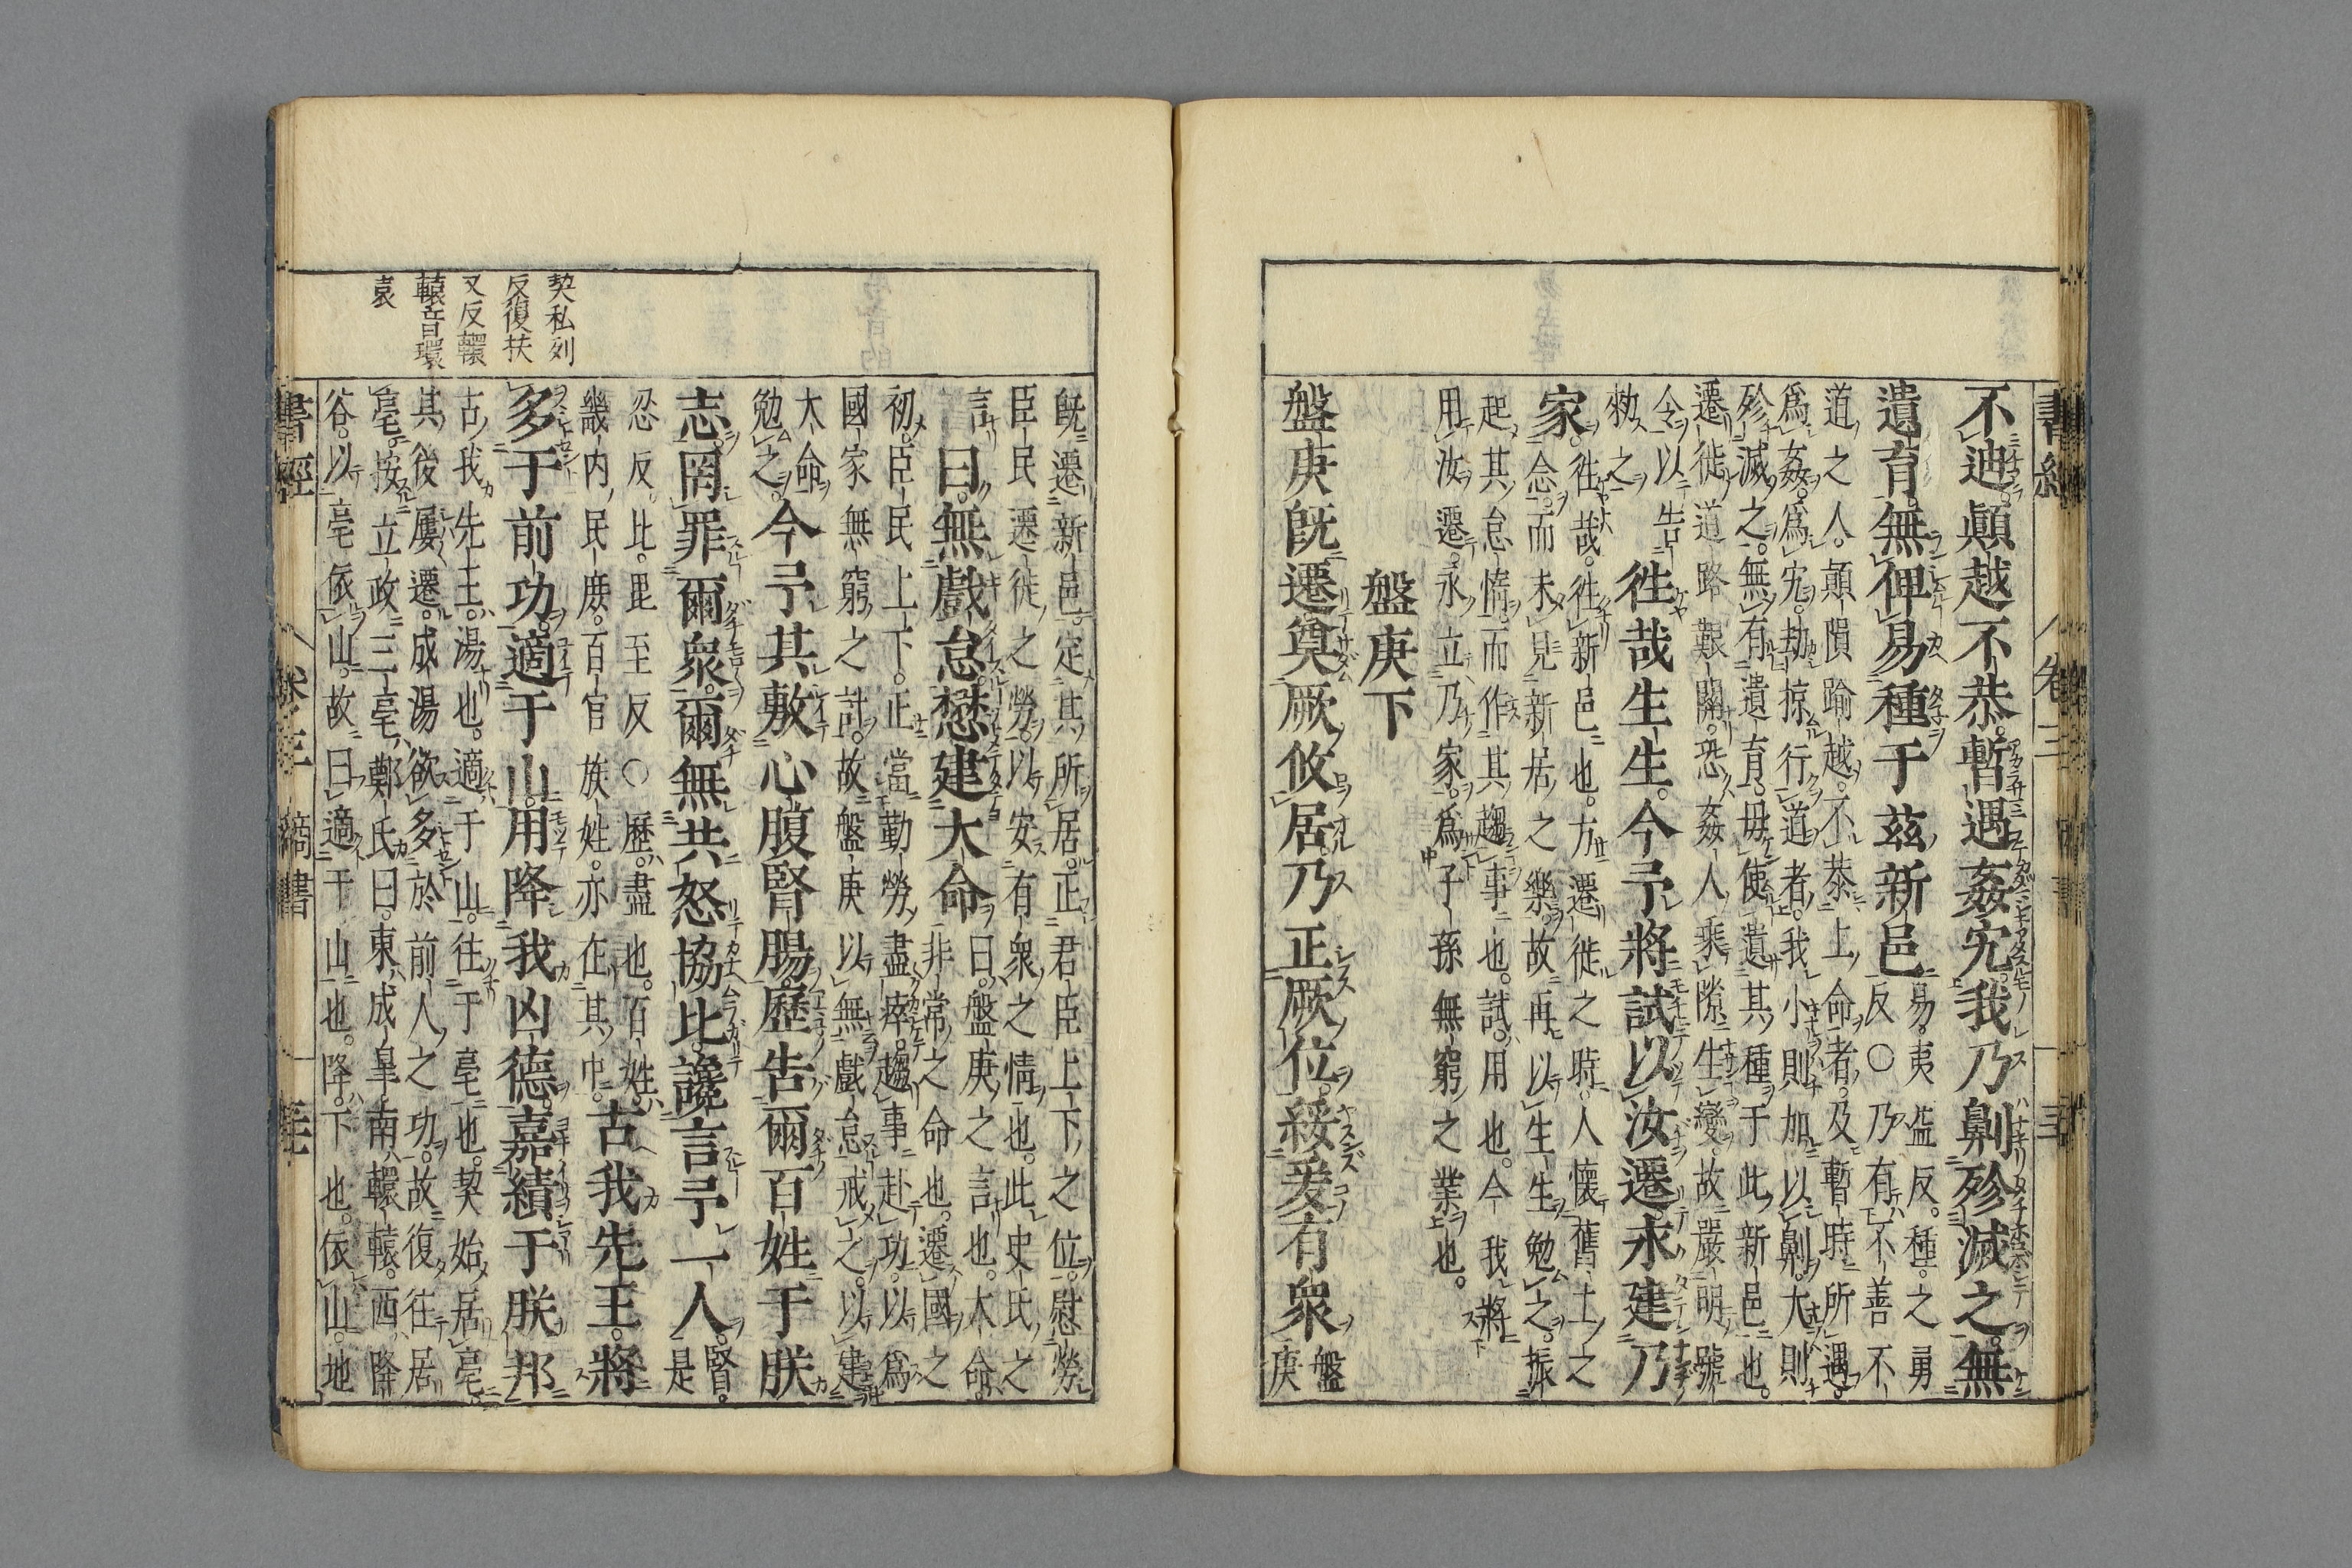 書經 卷三
不迪顚越不恭暫遇姦宄我乃劓殄滅之無
遺育無俾易種于茲新邑
易。夷益反。種。之勇
反○乃有不善不
道之人。顚隕踰越。不恭上命者。及暫時所遇。
爲姦。爲宄。劫掠行道者。我小則加以劓。大則
殄滅之。無有遺育。毋使遺其種于此新邑也。
遷徙道路艱關。恐姦人乘隙生變。故嚴明號
令以告
勑之
往哉生生。今予將試以汝遷永建乃
家
往哉。往新邑也。方遷徙之時。人懷舊土之
念。而未見新居之樂。故再以生生勉之。振
起其怠惰。而作其趨事也。試。用也。今我將
用汝遷。永立乃家。爲子孫無窮之業也。
盤庚下
盤庚旣遷奠厥攸居乃正厥位。綏爰有衆
盤
庚
旣遷新邑。定其所居。正君臣上下之位。慰勞
臣民遷徙之勞。以安有衆之情也。此史氏之
言
曰。無戲怠。懋建大命
曰。盤庚之言也。大命。
非常之命也。遷國之
初。臣民上下。正當勤勞盡瘁。趨事赴功。以爲
國家無窮之計。故盤庚以無戲怠戒之。以建
大命
勉之。
今予其敷心腹腎腸。歷告爾百姓于朕
志。罔罪爾衆。爾無共怒協比。讒言予一人
腎。
是
忍反。比。毘至反○歷。盡也。百姓。
畿內民庶。百官族姓。亦在其中。
古我先王。將
多于前功。適于山。用降我凶德。嘉績于朕邦
古我先王。湯也。適于山。往于亳也。契始居亳。
其後屢遷。成湯欲多於前人之功。故復往居
亳。按立政三亳。鄭氏曰。東成皐。南轘轅。西降
谷。以亳依山。故曰適于山也。降。下也。依山。地
契私列
反復扶
又反轘
轅音環
袁
書經 卷三